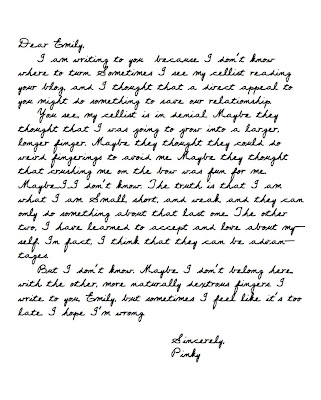 Dear Emily,
I am writing to you because I don't know
where to turn Sometimes I see my cellist reading
your blog, and I thought that a direct appeal to
you might do something to save our relationship
You see, my cellist is in denial Maybe they
thought that I was going to grow into a larger,
longer finger. Maybe they thought they could do
weird fingerings to avoid me Maybe they thought
that crushing me on the bow was fun for me.
Maybe I I don't know. The truth is that I am
what I am Small, short, and weak, and they can
only do something about that last one. The other
two, I have learned to accept and love about my-
self. In fact, I think that they can be advan-
tages
But I don't know. Maybe I don't belong here
with the other, more naturally dextrous fingers I
write to you Emily, but sometimes I feel like it's too
late I hope I'm wrong
Sincerely,
Pinky